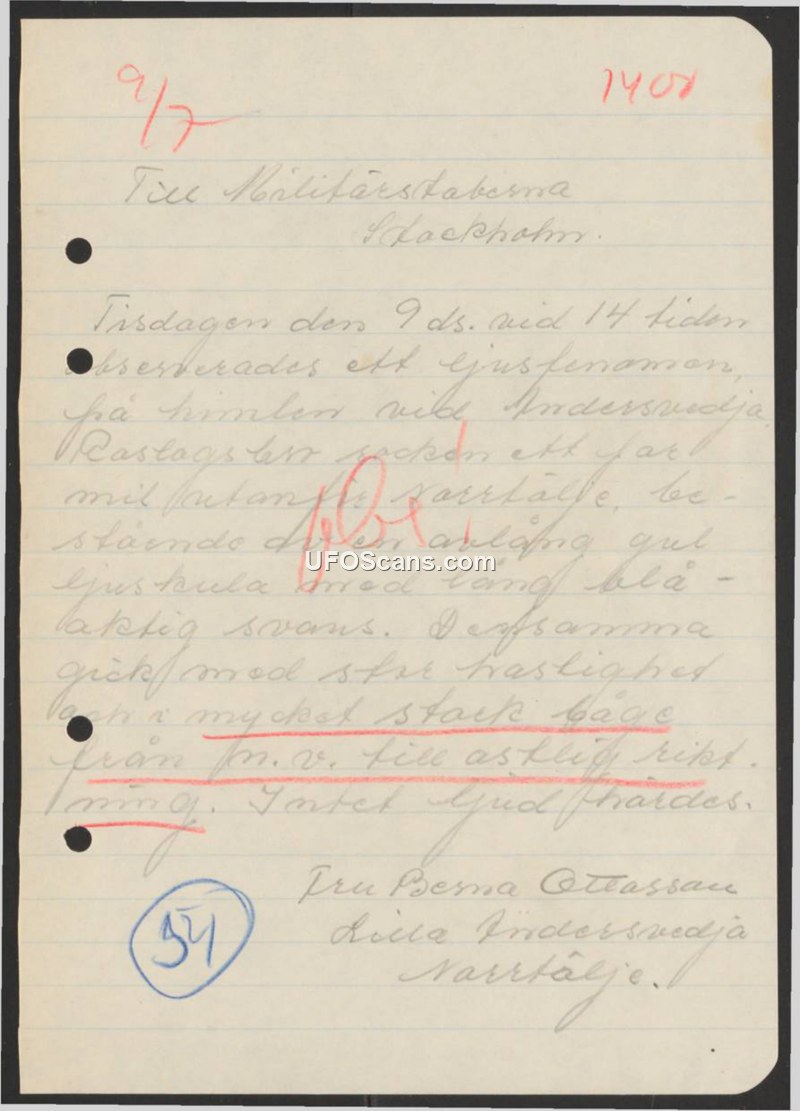 9/7
1400
Till Militärstaberna
Stockholm.
Tisdagen den 9 ds. vid 14 tiden
observerades ett ljusfenomen,
på himlen vid Andersvedja,
Roslagsbro socken ett par
mil utanför Norrtälje, be-
stående av en avlång gul
UFOScans.com
ljuskula med lång blå-
aktig svans. Densamma
gick med stor hastighet
och i mycket stark båge
från n.v. till ostlig rikt.
ning. Intet ljud hördes.
Fru Berna Ottosson
Lilla Andersvedja
Norrtälje.
54